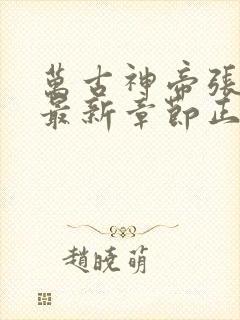 萬古神帝張
最新章節正
趙曉萌